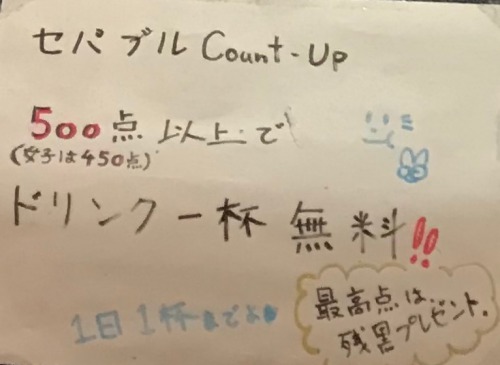 セパブル Count-Up
500点以上で
(女子は450点)
ドリンク一杯無料!!
1日1杯までよ
最高点は…
残黒プレゼント。